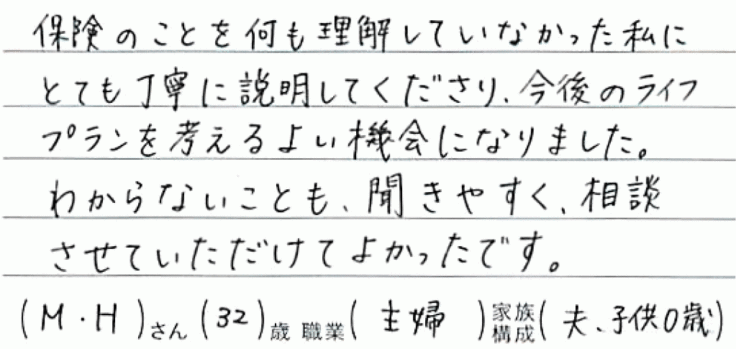 保険のことを何も理解していなかった私に
とても丁寧に説明してくださり、今後のライフ
プランを考えるよい機会になりました。
わからないことも、聞きやすく、相談
させていただけてよかったです。
(M・H)さん(32)歳 職業(主婦)家族構成(夫、子供0歳)